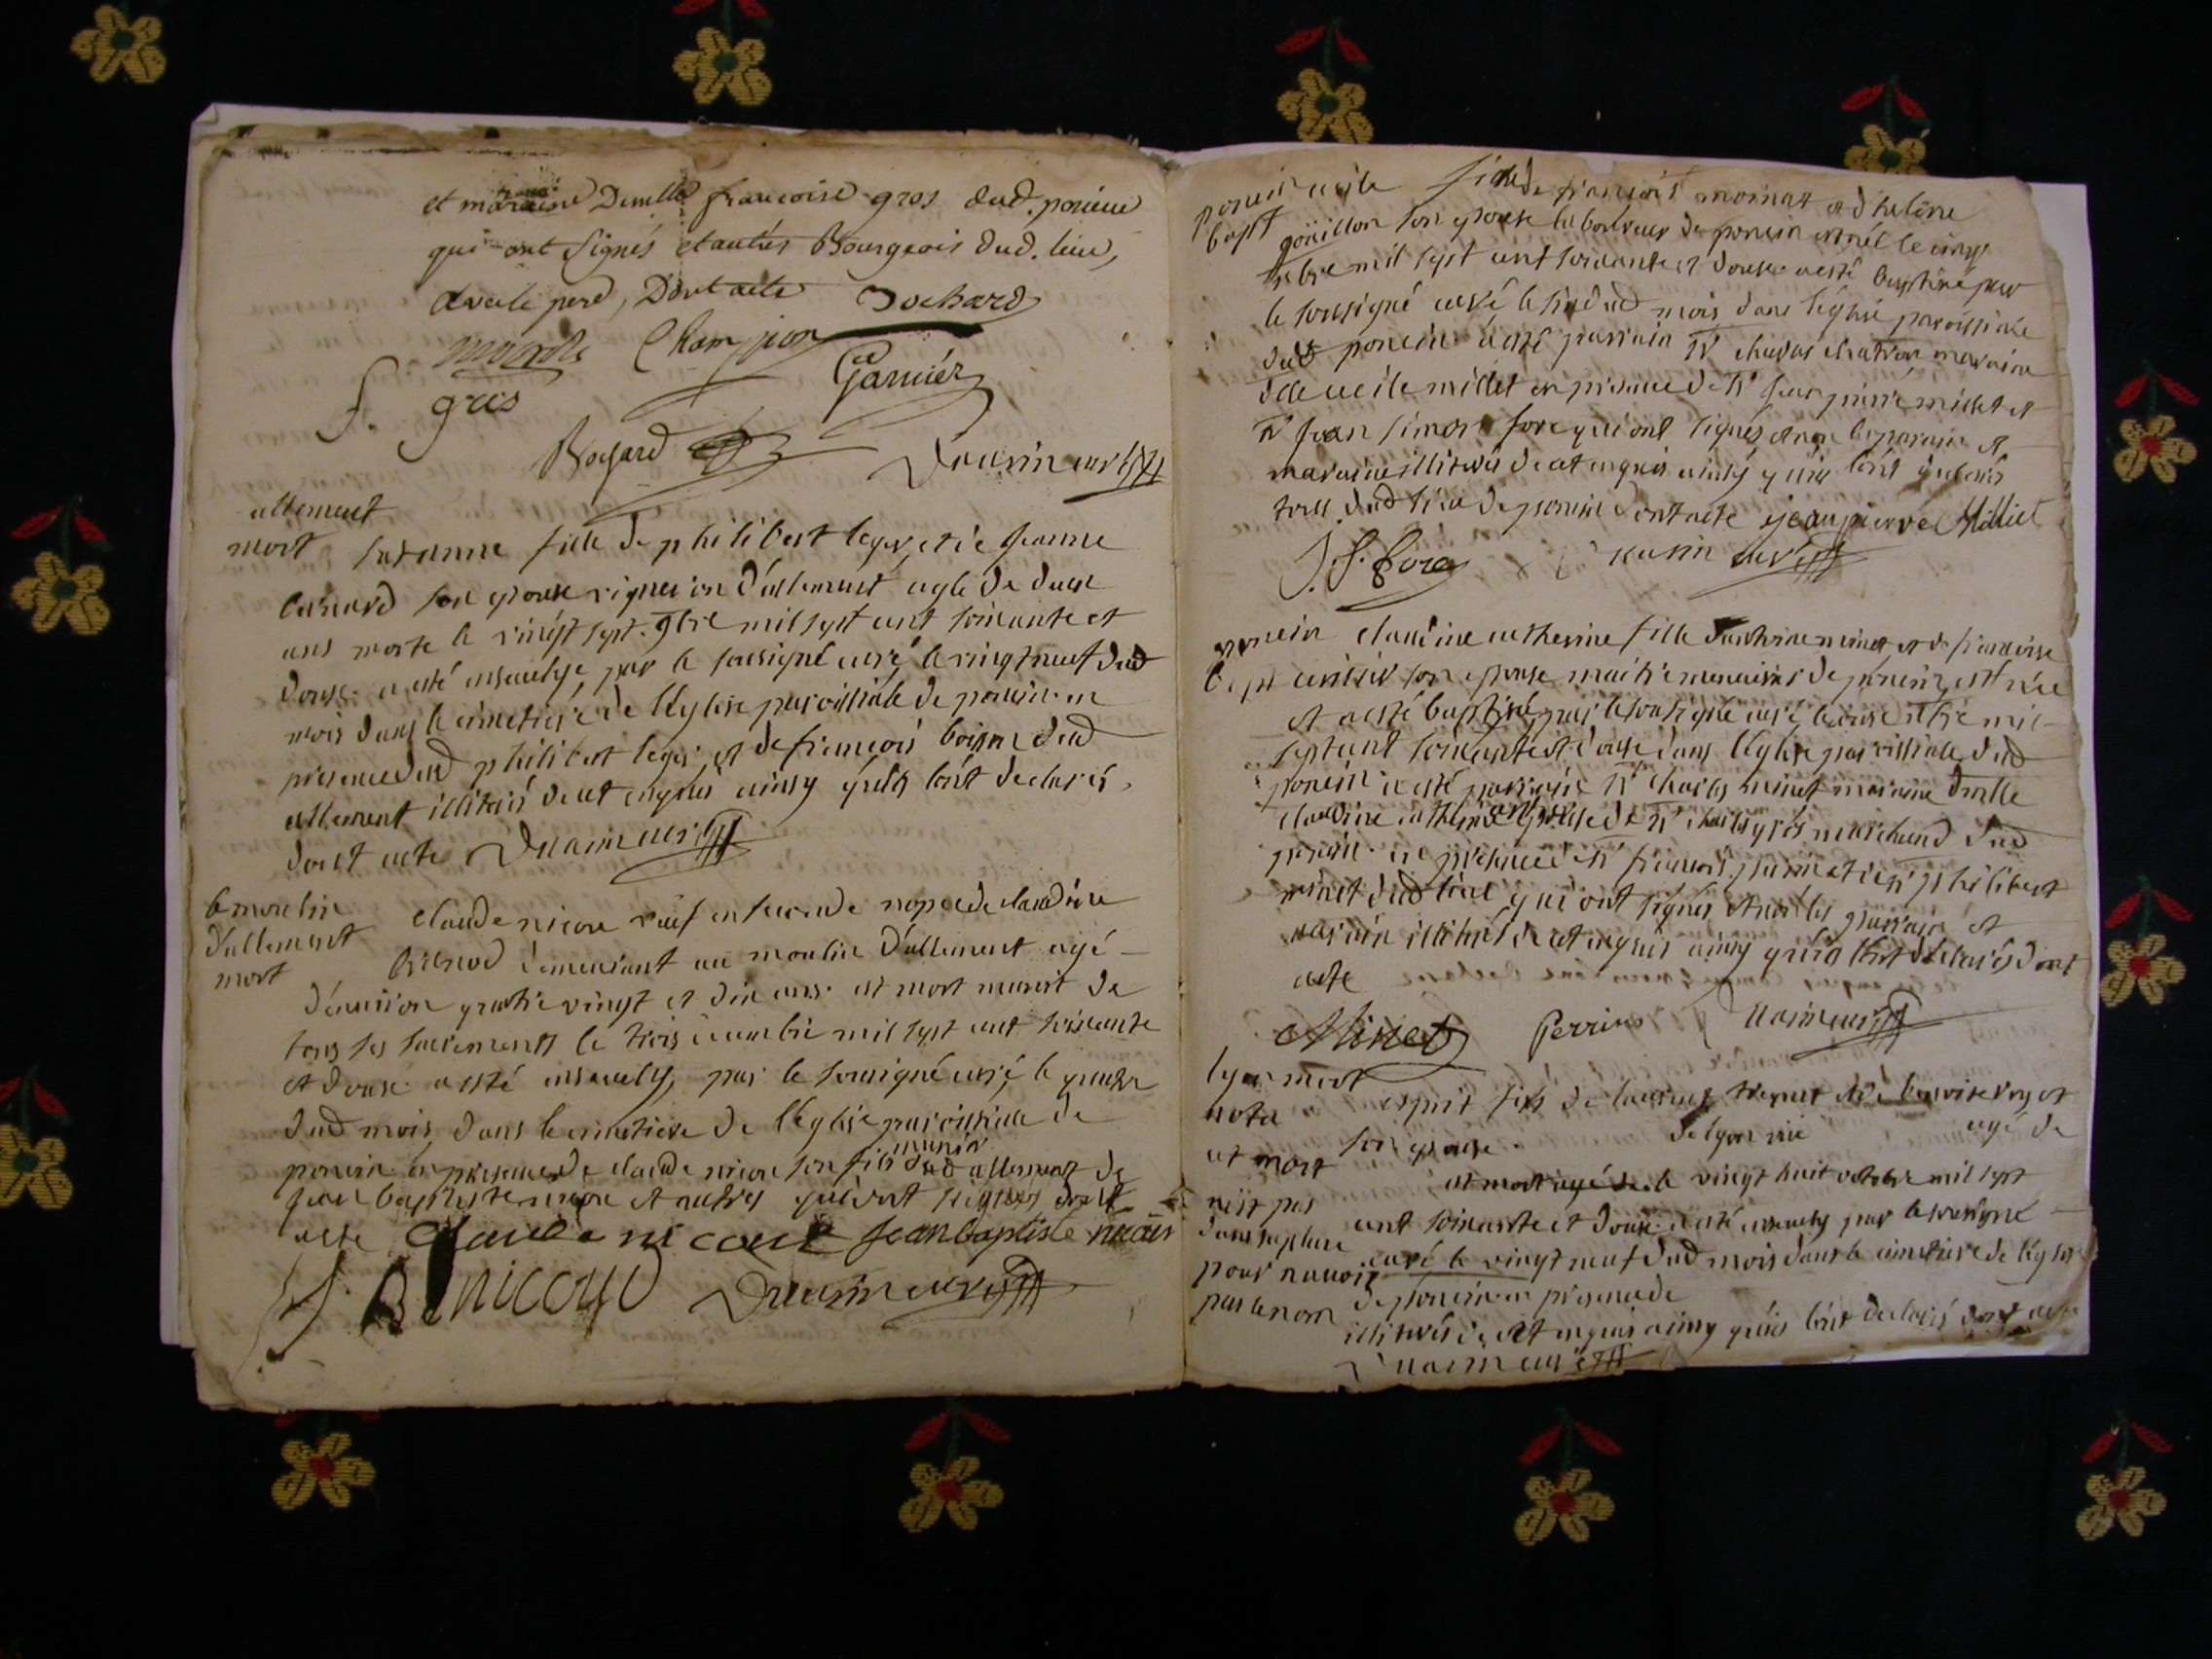 et maraine Demelle francoise gros dud. poncin
qui ont signés et autres Bourgeois dud. lieu,
avec le pere, Dont acte Bochard
Champion
Garnier
f. gros
Bogard
curé
allement
mort susanne fille de philibert leger, et de jeanne
son epouse vigneron d'allement agée de deux
ans morte le vingt sept 9bre mil sept cent soixante et
douse a esté ensevelye, par le sousigné curé, le vingt neuf dud
mois dans le cimetiere de l'eglise paroissiale de poncin en
presence dud philibert leger, et de francois dud
allement illiterés de cet enquis ainsy qu'ils l'ont declarés,
dont acte curé
le moulin
d'allement
mort
claude nicou veuf en seconde nopce de claudine
demeurant au moulin d'allement agé
d'environ quatre vingt et dix ans est mort munit de
tous ses sacrements le trois decembre mil sept cent soixante
et douse a esté ensevely, par le sousigné curé, le quatre
dud mois dans le cimetiere de l'eglise paroissiale de
poncin en presence de claude nicou son fils dud allement de
jean baptiste nicou et autres qui ont signés dont
acte claude nicoud jean baptiste
nicoud curé
poncin
bapt
cecile fille de francois moinat et d'helene
gouillon son epouse laboureur de poncin est née le cinq
xbre mil sept cent soixante et douse a esté baptisée par
le sousigné curé le six dud mois dans l'eglise paroissiale
dud poncin a esté parrain sr maraine
delle cecile millet en presence de sr jean pierre millet et
sr jean simon fore qui ont signés et non le parrain et
maraine illiterés de cet enquis ainsy qu'ils l'ont declarés
tous dud lieu de poncin dont acte jean pierre Milliet
J. S. fore curé
poncin
bapt
claudine catherine fille d'anthoine minet et de francoise
son epouse maitre menuisier de poncin, est née
et a esté baptisée par le sousigné curé le onse xbre mil
sept cent soixante et douse dans l'eglise paroissiale dud
poncin a esté parrain sr charles minet maraine dmelle
claudine catherine epouse de sr gros marchand dud
poncin en presence de sr francois perrin et de sr philibert
minet dud lieu qui ont signés et non les parrain et
maraine illiterés de cet enquis ainsy qu'ils l'ont declarés dont
acte
Minet Perrin curé
lyon mort
nota
cet mort
n'est pas
dans sa place
pour n'avoir
pas le nom
esprit fils de et de
son epouse de lyon agé de
est mort agé de le vingt huit octobre mil sept
cent soixante et douse a esté ensevely par le sousigné
curé le vingt neuf dud mois dans le cimetiere de l'eglise
de poncin en presence de
illiterés de cet enquis ainsy qu'ils l'ont declarés dont acte
curé